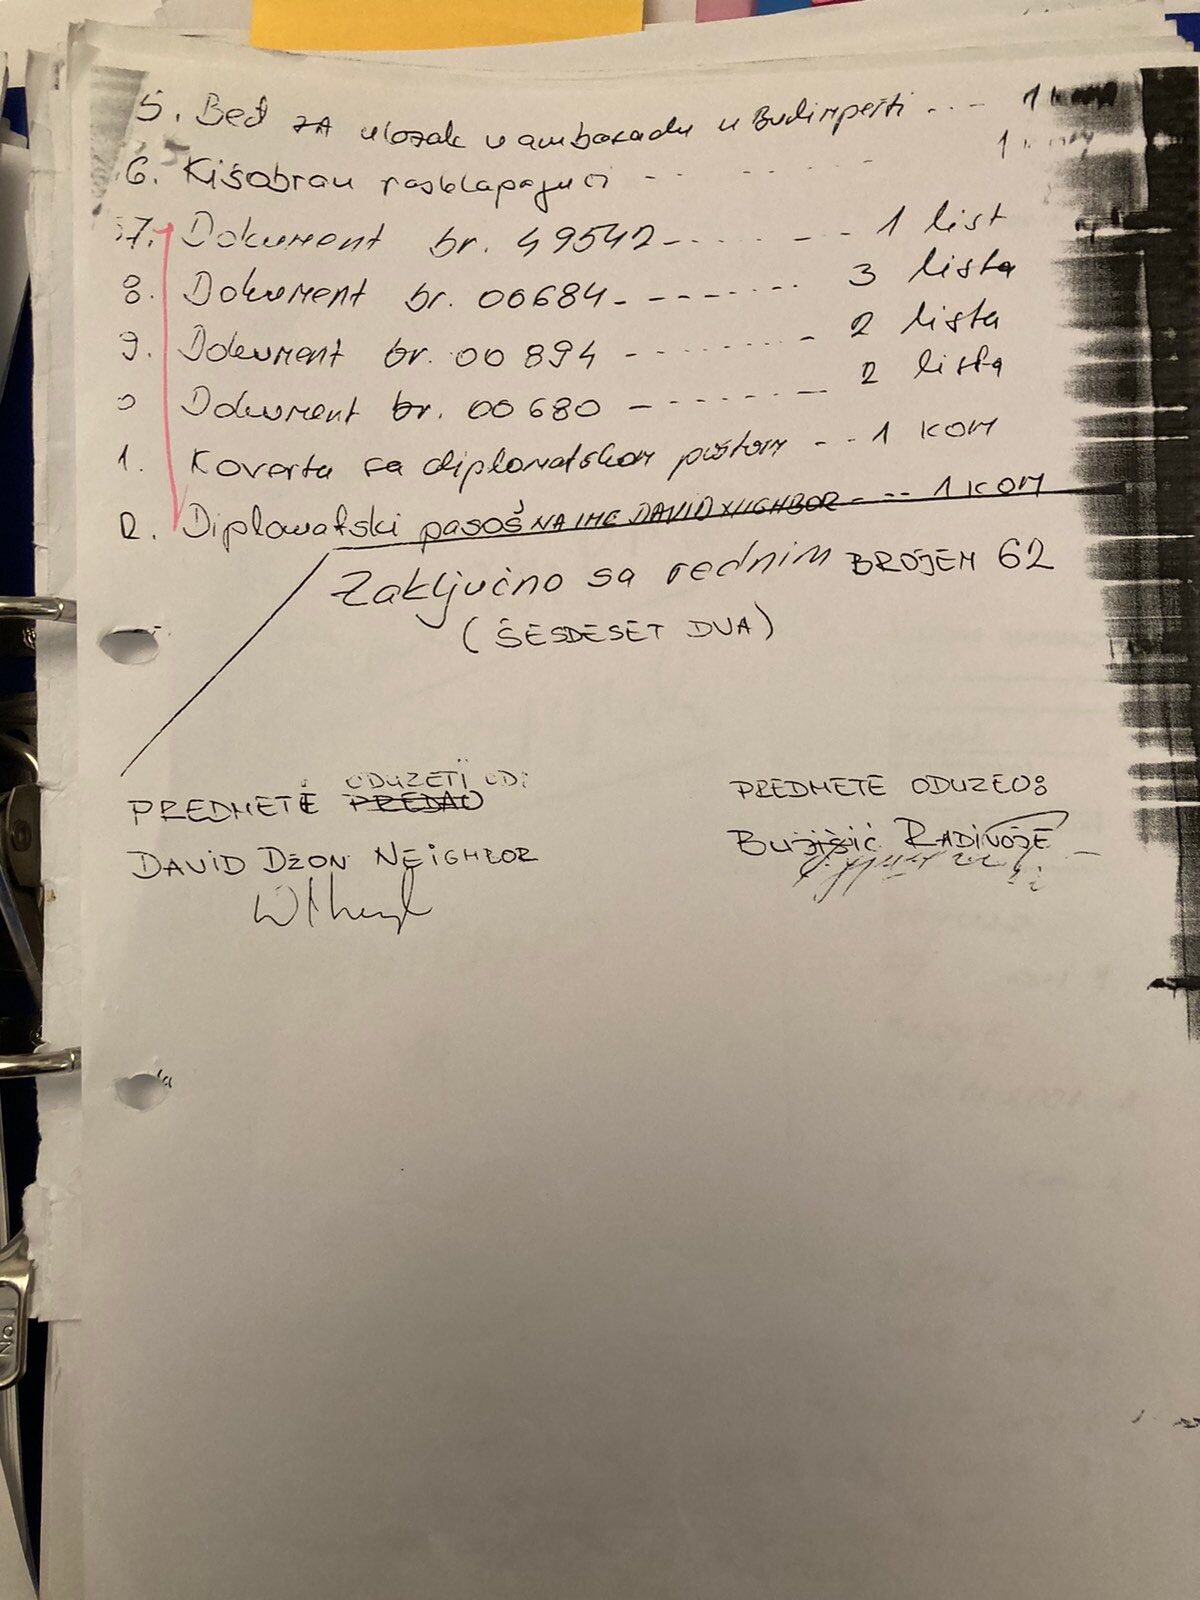 5. Beđ ZA ulazak u ambasadu u Budimpešti ... - 1 kom
6. Kišobran rasklapajući - - - - - 1 kom
57. Dokument br. 49542 - - - - - - 1 list
8. Dokument br. 00684 - - - - - - 3 lista
9. Dokument br. 00894 - - - - - - 2 lista
0 Dokument br. 00680 - - - - - - 2 lista
1. Koverta sa diplomatskom poštom - - 1 KOM
2. Diplomatski pasoš NA IME DAVID NEIGHBOR - - - 1 KOM
Zaključno sa rednim BROJEM 62
(ŠESDESET DVA)
ODUZETI OD:
PREDMETI PREDAO
DAVID DŽON NEIGHBOR
PREDMETE ODUZEO:
RADIVOJE
No